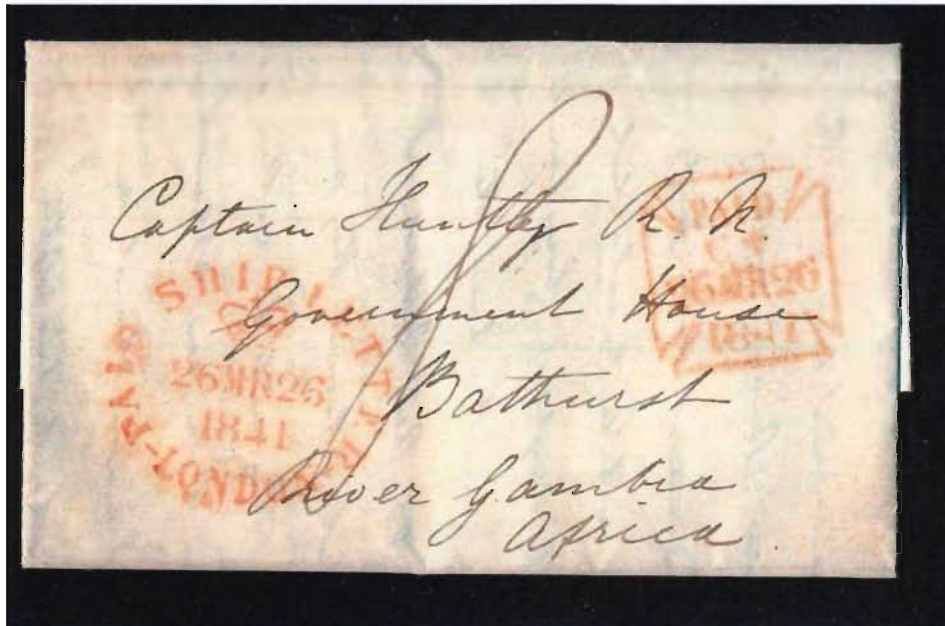 Captain Huntly R. N.
Government House
Bathurst
River Gambia
Africa.
PAID SHIP LETTER
26MR26
1841
LONDON
PAID
26MR26
1841